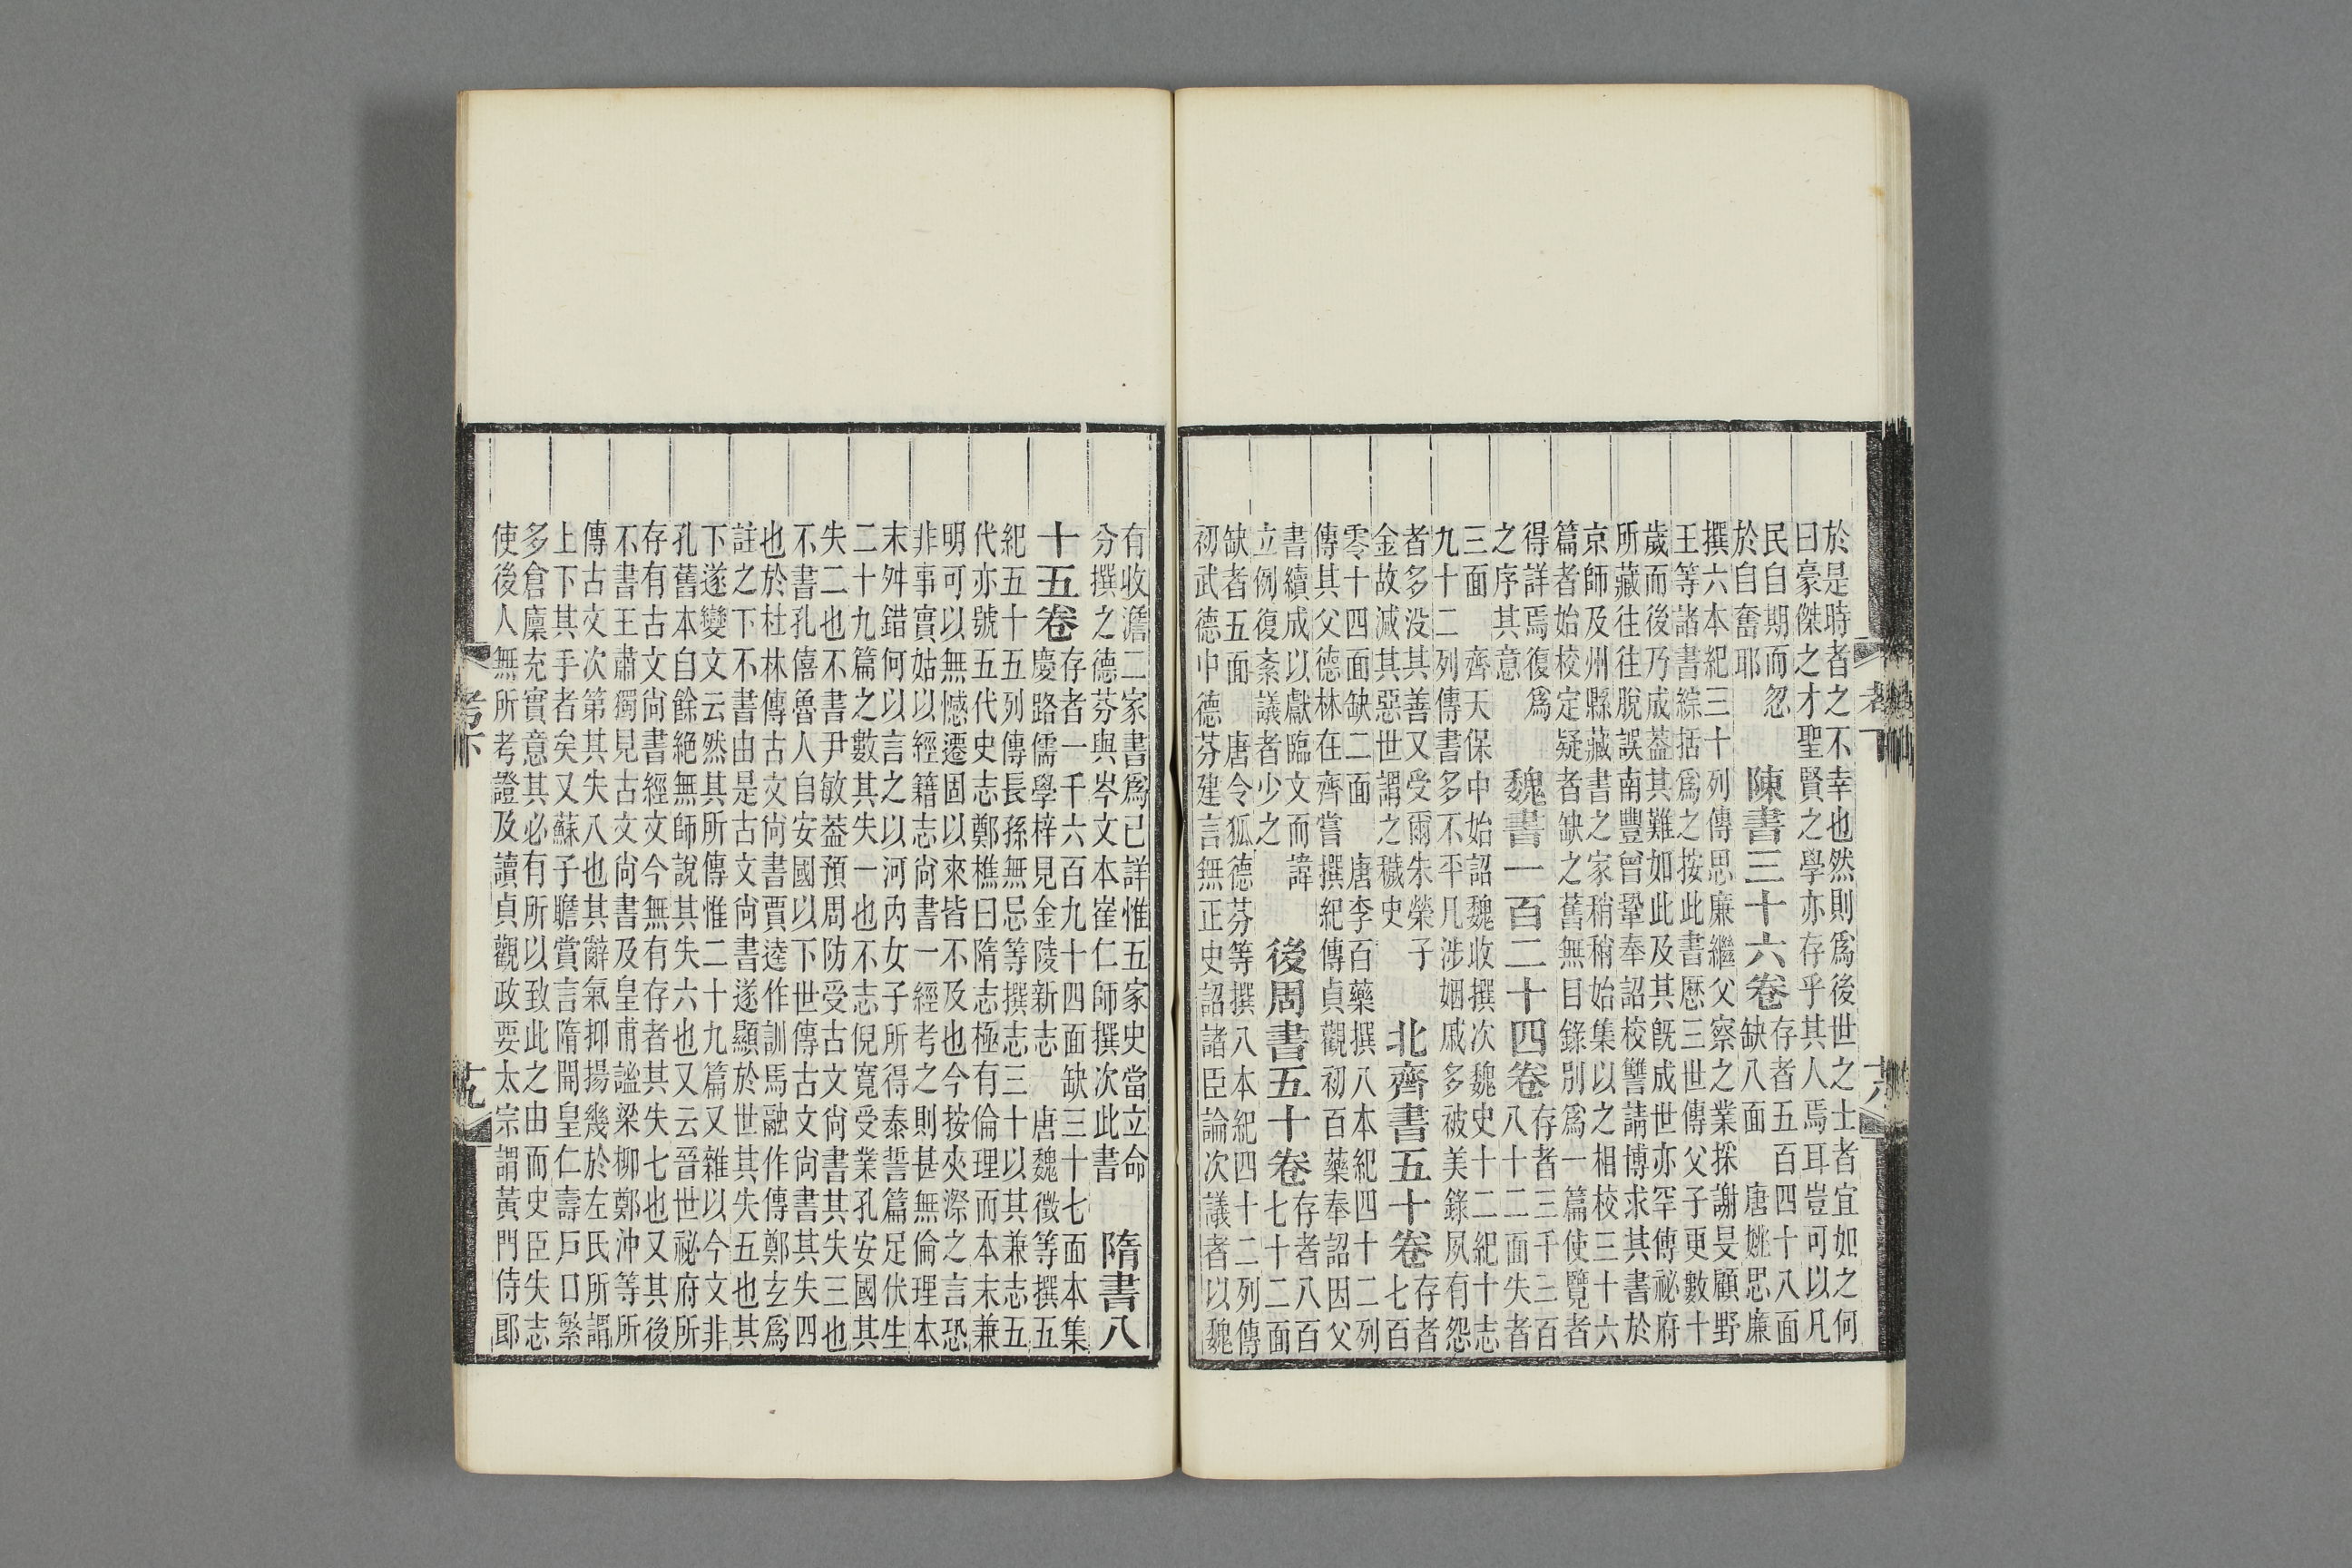 於是時者之不幸也然則爲後世之士者宜如之何
曰豪傑之才聖賢之學亦存乎其人焉耳豈可以凡
民自期而忽
於自奮耶
陳書三十六卷
存者五百四十八面
缺八面 唐姚思廉
撰六本紀三十列傳思廉繼父察之業採謝旻顧野
王等諸書綜括爲之按此書歷三世傳父子更數十
歲而後乃成葢其難如此及其旣成世亦罕傳祕府
所藏往往脫誤南豐曾鞏奉詔校讐請博求其書於
京師及州縣藏書之家稍稍始集以之相校三十六
篇者始校定疑者缺之舊無目錄別爲一篇使覽者
得詳焉復爲
之序其意
魏書一百二十四卷
存者三千三百
八十二面失者
三面 齊天保中始詔魏收撰次魏史十二紀十志
九十二列傳書多不平凡涉姻戚多被美錄夙有怨
者多没其善又受爾朱榮子
金故減其惡世謂之穢史
北齊書五十卷
存者
七百
零十四面缺二面 唐李百藥撰八本紀四十二列
傳其父德林在齊嘗撰紀傳貞觀初百藥奉詔因父
書續成以獻臨文而諱
立例復紊議者少之
後周書五十卷
存者八百
七十二面
缺者五面 唐令狐德芬等撰八本紀四十二列傳
初武德中德芬建言無正史詔諸臣論次議者以魏
考下
有收澹二家書爲已詳惟五家史當立命
分撰之德芬與岑文本崔仁師撰次此書
隋書八
十五卷
存者一千六百九十四面 缺三十七面本集
慶路儒學梓見金陵新志 唐魏徵等撰五
紀五十五列傳長孫無忌等撰志三十以其兼志五
代亦號五代史志鄭樵曰隋志極有倫理而本末兼
明可以無憾遷固以來皆不及也今按夾漈之言恐
非事實姑以經籍志尙書一經考之則甚無倫理本
末舛錯何以言之以河內女子所得泰誓篇足伏生
二十九篇之數其失一也不志倪寬受業孔安國其
失二也不書尹敏葢預周防受古文尙書其失三也
不書孔僖魯人自安國以下世傳古文尙書其失四
也於杜林傳古文尙書賈逵作訓馬融作傳鄭玄爲
註之下不書由是古文尙書遂顯於世其失五也其
下遂變文云然其所傳惟二十九篇又雜以今文非
孔舊本自餘絶無師說其失六也又云晉世祕府所
存有古文尙書經文今無有存者其失七也又其後
不書王肅獨見古文尙書及皇甫謐梁柳鄭沖等所
傳古文次第其失八也其辭氣抑揚幾於左氏所謂
上下其手者矣又蘇子瞻賞言隋開皇仁壽戶口繁
多倉廩充實意其必有所以致此之由而史臣失志
使後人無所考證及讀貞觀政要太宗謂黃門侍郎
考下